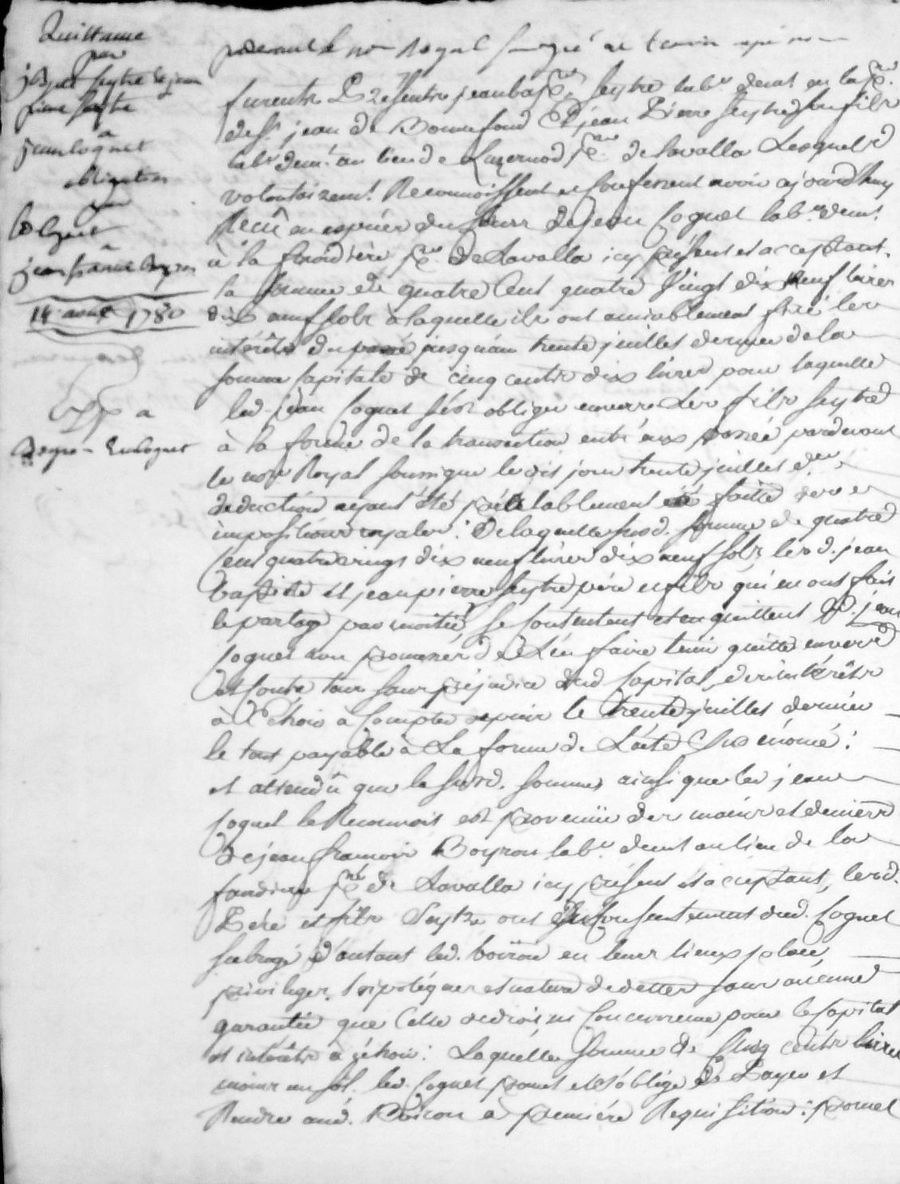 Quittance
par
jBaptte Seytre & jean
pierre Seytre
a
jean Coguet
obligation
par
led Coguet
a
jean francois Boyron
14 aoust 1780
a
Coguet
pardevant le nore Royal soussigné et temoin
furent Présents jean bapte Seytre labr demt en la pse
de St jean de Bonnefond & jean Pierre Seytre son fils
labr demt au lieu de Luzernod pse de Lavalla Lesquels
volontairemt Reconnoissent et confessent avoir ajourdhuy
Reçû en espèces du cours de jean Coguet labr demt
à la fondiere pse de Lavalla icy présent et acceptant
la somme de quatre Cent quatre Vingt dix neuf livres
dix neuf sols à laquelle ils ont amiablement fixé les
intérêts du passé jusqu'au trente juillet dernier de la
somme Capitale de cinq cents dix livres pour laquelle
led. jean Coguet s'est obligé envers Les fils Seytre
à la forme de la transaction entr'eux passée pardevant
le nore Royal soussigné le dit jour trente juillet der
deduction ayant été préalablement faite des
impositions royales : De laquelle susd. somme de quatre
Cent quatre vingt dix neuf livres dix neuf sols, lesd. jean
baptiste et jean pierre Seytre père et fils qui en ont fait
le partage par moitié, se contentent et en quittent led. jean
Coguet avec promesse de L'en faire tenir quitte envers
et contre tous sans préjudice dud Capital, des intérêts
à Echoir à Compter depuis le trente juillet dernier
le tout payable à La forme de L'acte sus énoncé :
et attendû que la susd. somme, ainsi que led jean
Coguet le Reconnoit est provenüe des mains et deniers
de jean francois Boyron labr demt au lieu de la
fondiere pse de Lavalla icy présent et acceptant, lesd.
Père et fils Seytre ont du consentement dud. Coguet
subrogé d'autant led. boiron en leurs lieux, place,
privileges, hipotéques et nature de dettes sans aucune
garantie que Celle de droit ni Concurrence pour le Capital
et intérêts à échoir : Laquelle somme de Cinq Cents livres
moins un sol, led. Coguet promet et s'oblige de Payer et
Rendre aud. Boiron à première Requisition : promet